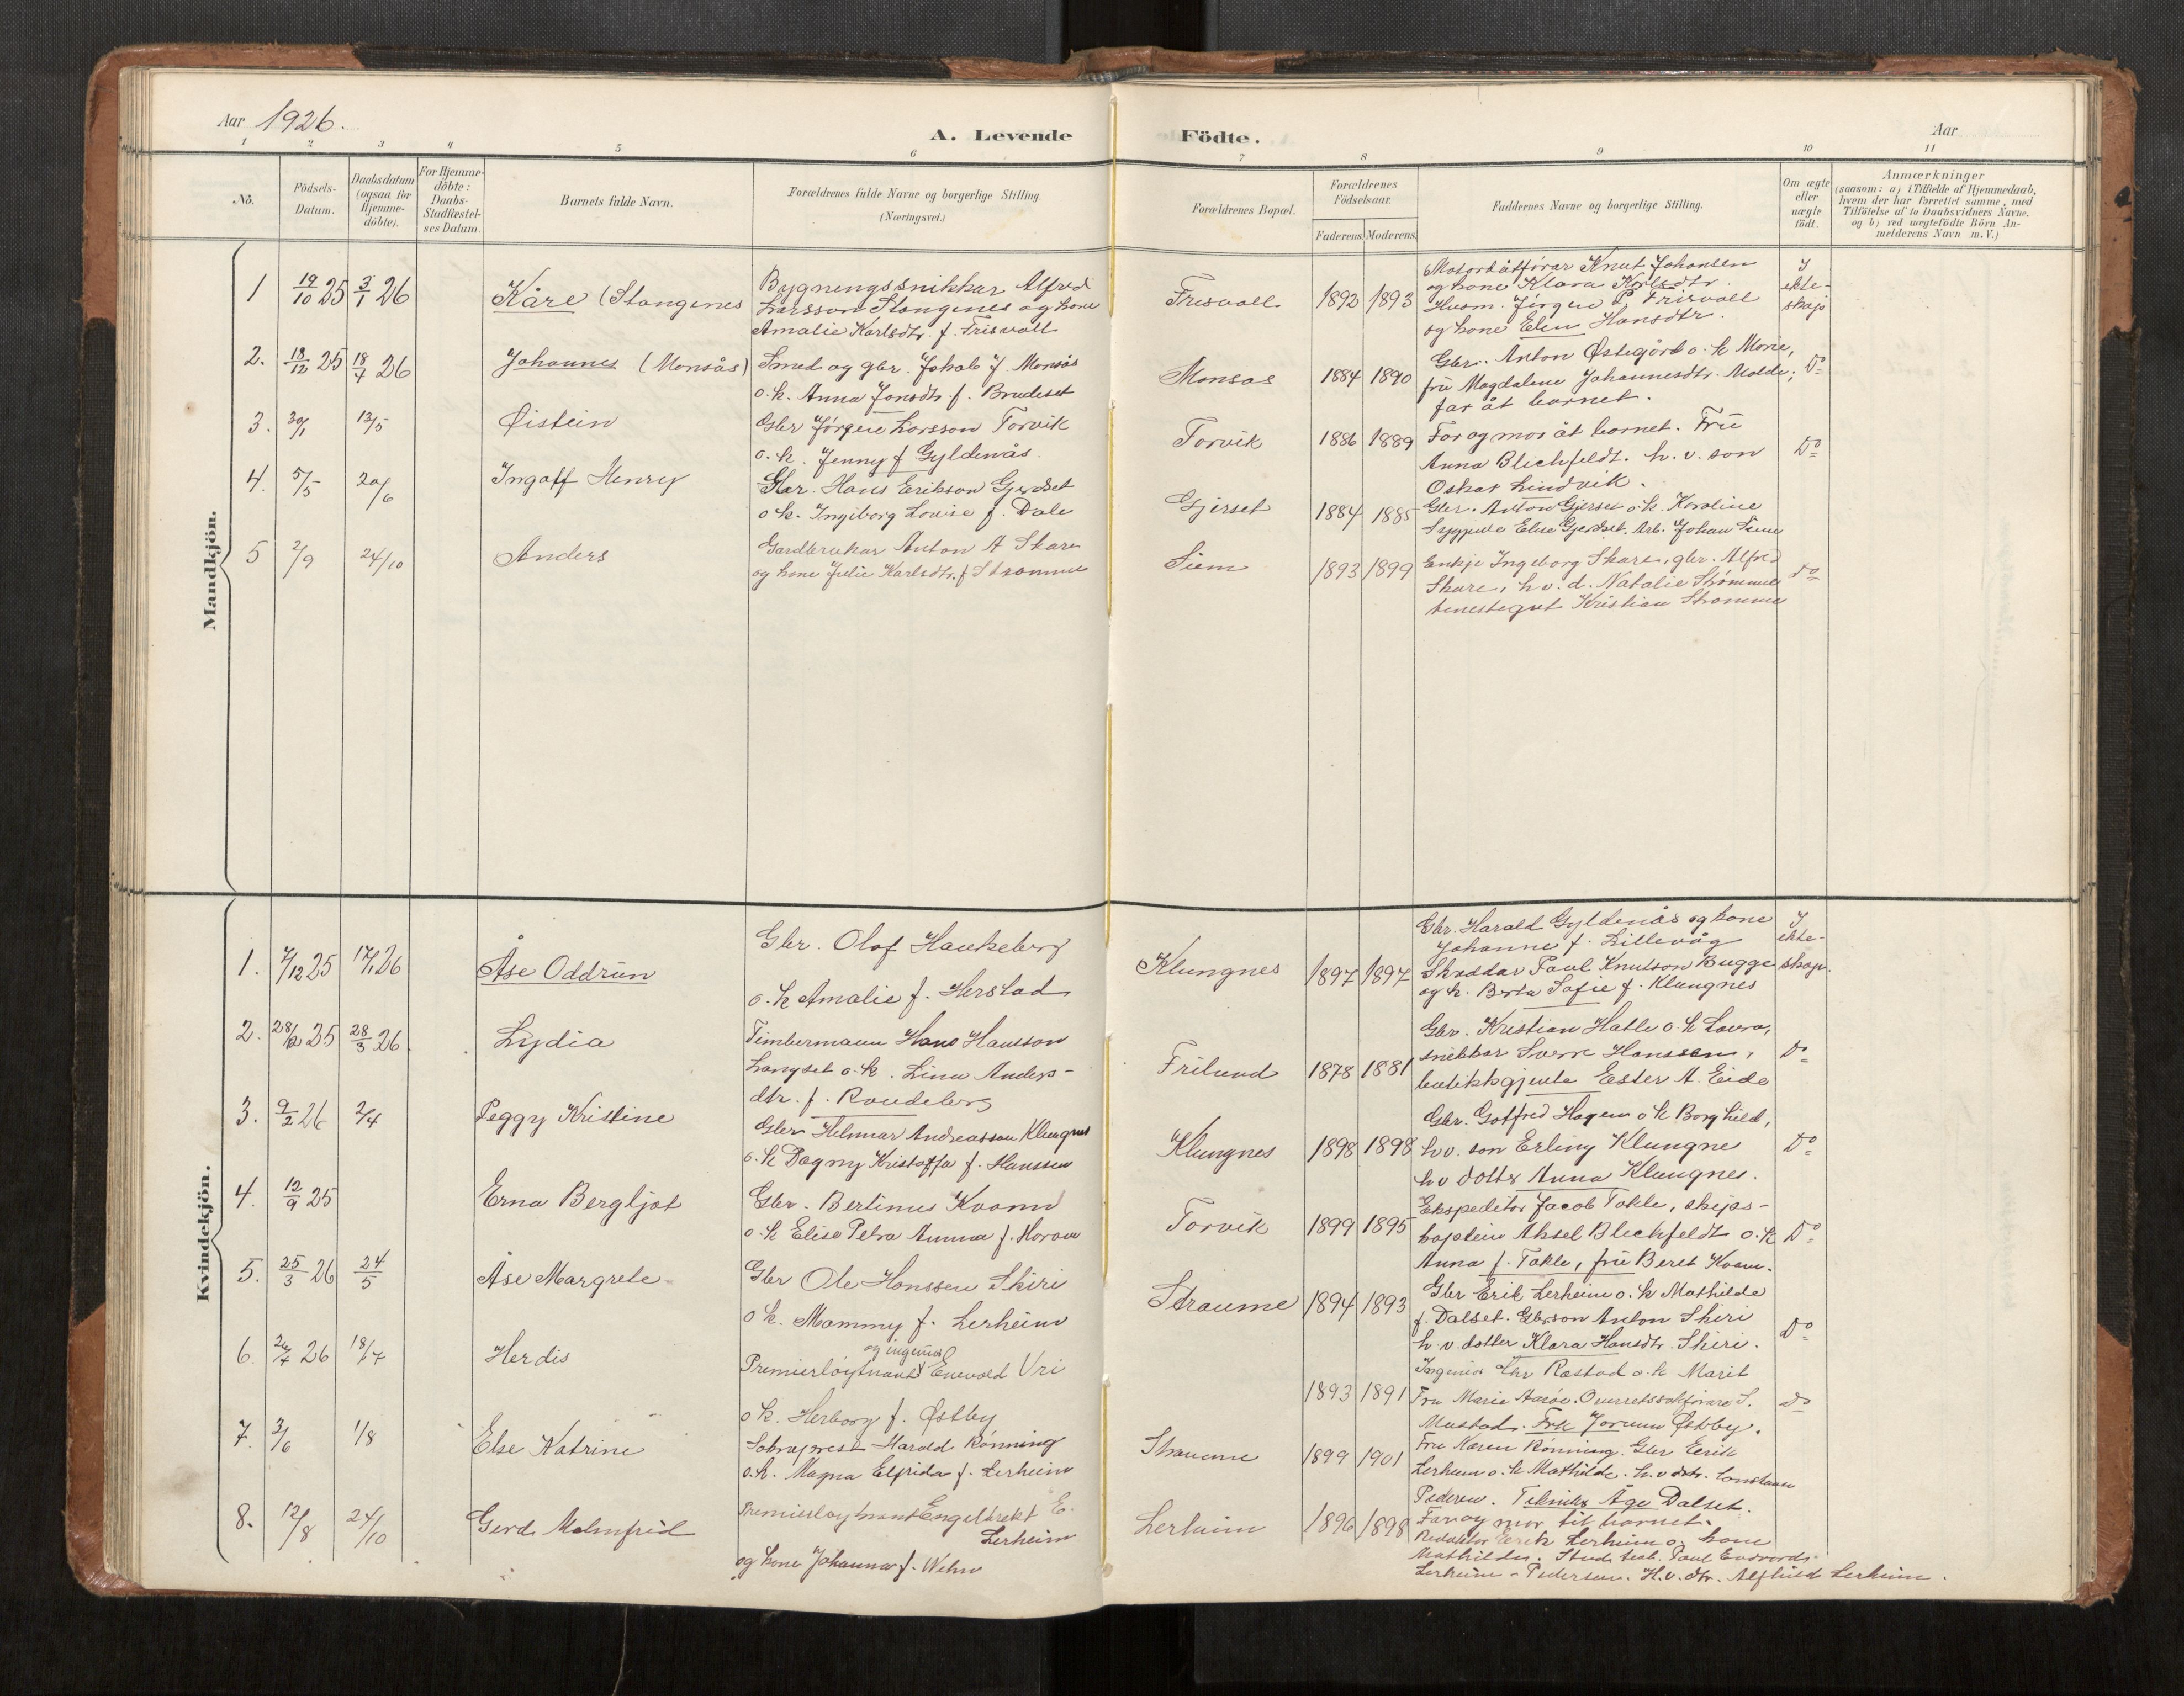 Aar 1926.
A. Levende
Födte.
Aar
1 2 3 4 5 6 7 8 9 10 11
No.
Födsels-
Datum.
Daabsdatum
(ogsaa för
Hjemme-
döbte).
For Hjemme-
döbte:
Daabs-
Stadfæstel-
ses Datum.
Barnets fulde Navn.
Forældrenes fulde Navne og borgerlige Stilling.
(Næringsvei.)
Forældrenes Bopæl.
Forældrenes
Födselsaar.
Faderens. Moderens.
Faddernes Navne og borgerlige Stilling.
Om ægte
eller
uægte
födt.
Anmærkninger
(saasom: a) i Tilfælde af Hjemmedaab,
hvem der har forrettet samme, med
Tilföielse af to Daabsvidners Navne.
og b) ved uægtefödte Börn An-
melderens Navn m.V.)
Mandkjön.
1 19/10 25 3/1 26 Kåre (Stangenes
Bygningssnikkar Alfred
Larsson Stangenes og kone
Amalie Karlsdtr. f. Frisvoll
Frisvoll 1892 1893
Motorbåtförar Knut Johansen
og kone Klara Karlsdtr.
Husm. Jörgen P. Frisvoll
og kone Elen Hansdtr.
I
ekte-
skap
2. 18/12 25 18/4 26 Johannes (Monsås)
Smed og gbr. Jakob J Monsås
o.k. Anna Jonsdtr. f. Brudeset
Monsas 1884 1890
Gbr. Anton Østigård o. k Mone,
frü Magdalene Johannesdtr. Molde;
far åt barnet.
Do
3. 30/1 13/5 Øistein
Gbr Jörgen Larsson Torvik
o.k. Jenny f Gyldenås.
Torvik 1886 1889
Far og mor åt barnet. Frü
Anna Blichfeldt. h.v. son
Oskar Lindvik.
Do
4. 5/5 20/6 Ingolf Henry
Gbr. Hans Erikson Gjerdset
o k. Ingiborg Lovise f. Dale
Gjerset 1884 1885
Gbr. Anton Gjerset o.k. Karoline
Sygjente Elna Gjerdset. Arb. Johan
5 2/9 24/10 Anders
Gardbrukar Anton A Skare
og kone Julie Karlsdtr. f Stromme
Siem 1893 1899
Enkje Ingeborg Skare, gbr. Alfred
Skare, h.v.d. Natalie Strömme
tenestegut Kristian Stromme
do
Kvindekjön.
1. 7/12 25 17/1 26 Åse Oddrün
Gbr. Olaf Haukeberg
o. k Amalie f. Herstad
Klungnes 1897 1897
Gbr. Harald Gyldenås og kone
Johanne f. Lillevåg
Skreddar Paul Knutson Bugge
og k. Berta Sofie f. Klungnes
I
ekte-
skap.
2. 28/12 25 28/3 26 Lydia
Timbermann Hans Hansson
Langset o.k. Lina Anders-
dtr. f. Roudeberg
Frilund 1878 1881
Gbr. Kristian Hatle o. k Lovra,
snikkar Sverre Hanssen,
butikkgjente Ester A. Eide
Do
3. 9/2 26 2/4 Peggy Kristine
Gbr Hilmar Andreasson Klungnes
o. k Dagny Kristoffa f. Hanssen
Klungnes 1898 1898
Gbr. Gotfred Hagem o k Borghild,
h.v. son Erling Klungne
h v dotter Anna Klungnes.
Do
4. 12/9 25 Erna Bergljot
Gbr. Bertinus Kvam
o. k Elise Petra Anna f. Horven
Torvik 1899 1895
Ekspeditör Jacob Takle, skips-
kaptein Aksel Blichfeldt o. k
Anna f. Takle, frü Beret Kvam.
Do
5. 25/3 26 24/5 Åse Margrete
Gbr Ole Hanssen Skiri
o k. Mammy f. Lerheim
Straume 1894 1893
Gbr Erik Lerheim o. k Mathilde
f. Dalset. Gbrson Anton Skiri
h. v. dotter Klara Hansdtr. Skiri.
Do
6. 26/4 26 18/7 Herdis
og ingeniör
Premierløytnant Enevold Vri
o k. Herborg f. Østby
1893 1891
Ingeniör Chr Rostad o. k Marit
Fru Marie Aaröe. Overretssakförare S.
Mustad. Frk Jorunn Østby.
do
7. 3/6 1/8 Else Katrine
Soknaprest Harald Rönning
o.k. Magna Elfrida f. Lerheim
Straume 1899 1901
Fru Karen Rönning. Gbr Eerik
Lerheim o. k Mathilde. h. v dtr. Constance
Pedersen. Tekniker Åge Dalset.
8. 12/8 24/10 Gerd Malmfrid
Premierløytnant Engelbrekt E.
Lerheim
og kone Johanna f. Wehn
Lerheim 1896 1898
Far og mor til barnet.
Redaktör Eerik Lerheim og kone
Mathilde. Stud. real. Paul Endvords
Lerheim - Pedersen. H. v. dtr. Alfhild Lerheim.